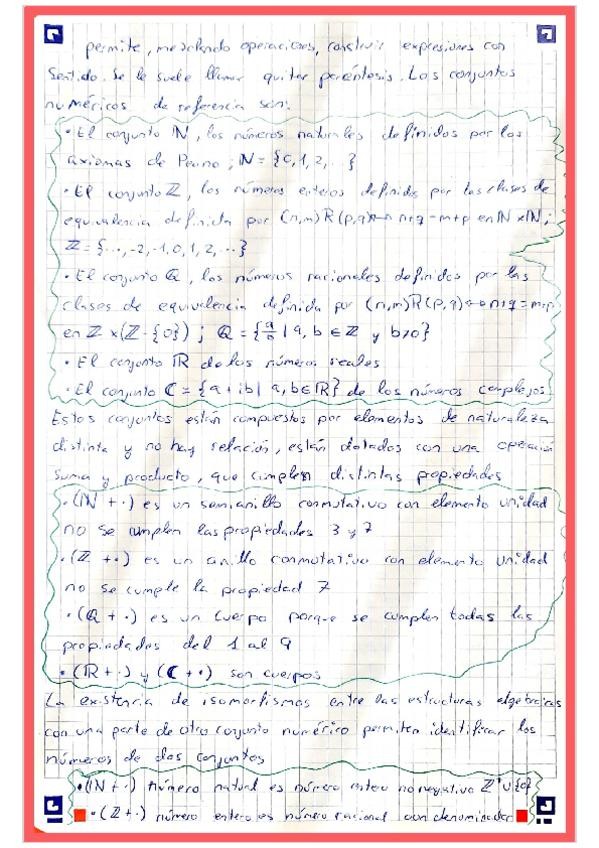 permite, mezclando operaciones, construir expresiones con
sentido. Se le suele llamar quitar paréntesis. Los conjuntos
numéricos de referencia son:
• El conjunto ℕ, los números naturales definidos por los
axiomas de Peano; ℕ = {0,1,2,...}
• El conjunto ℤ, los números enteros definidos por las clases de
equivalencia definida por (n,m)R(p,q)↔ n+q=m+p en ℕxℕ;
ℤ = {...,-2,-1,0,1,2,...}
• El conjunto ℚ, los números racionales definidos por las
clases de equivalencia definida por (n,m)R(p,q)↔ n+q=m+p
en ℤ x(ℤ-{0}) ; ℚ = {a/b | a, b ∈ ℤ y b>0}
• El conjunto ℝ de los números reales
• El conjunto ℂ = {a+ib | a,b∈ℝ} de los números complejos
Estos conjuntos están compuestos por elementos de naturaleza
distinta y no hay relación, están dotados con una operación
suma y producto, que cumplen distintas propiedades
• (ℕ + ·) es un semianillo conmutativo con elemento unidad
no se cumplen las propiedades 3 y 7
• (ℤ + ·) es un anillo conmutativo con elemento unidad
no se cumple la propiedad 7
• (ℚ + ·) es un cuerpo porque se cumplen todas las
propiedades del 1 al 9
• (ℝ + ·) y (ℂ + ·) son cuerpos
La existencia de isomorfismos entre las estructuras algebraicas
con una parte de otro conjunto numérico permiten identificar los
números de dos conjuntos
• (ℕ + ·) número natural es número entero no negativo ℤ⁺∪{0}
• (ℤ + ·) número entero es número racional con denominador